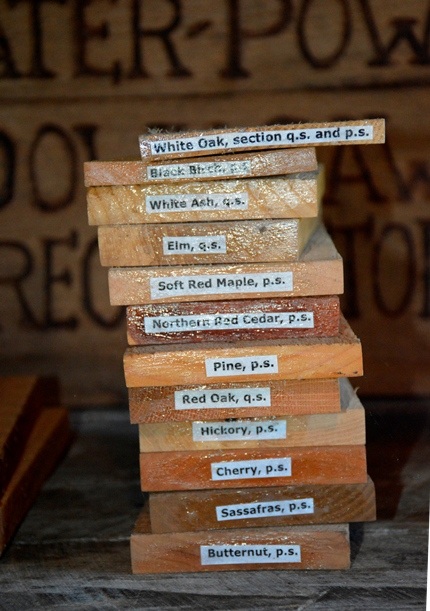 White Oak, section q.s. and p.s.
Black Birch, p.s.
White Ash, q.s.
Elm, q.s.
Soft Red Maple, p.s.
Northern Red Cedar, p.s.
Pine, p.s.
Red Oak, q.s.
Hickory, p.s.
Cherry, p.s.
Sassafras, p.s.
Butternut, p.s.